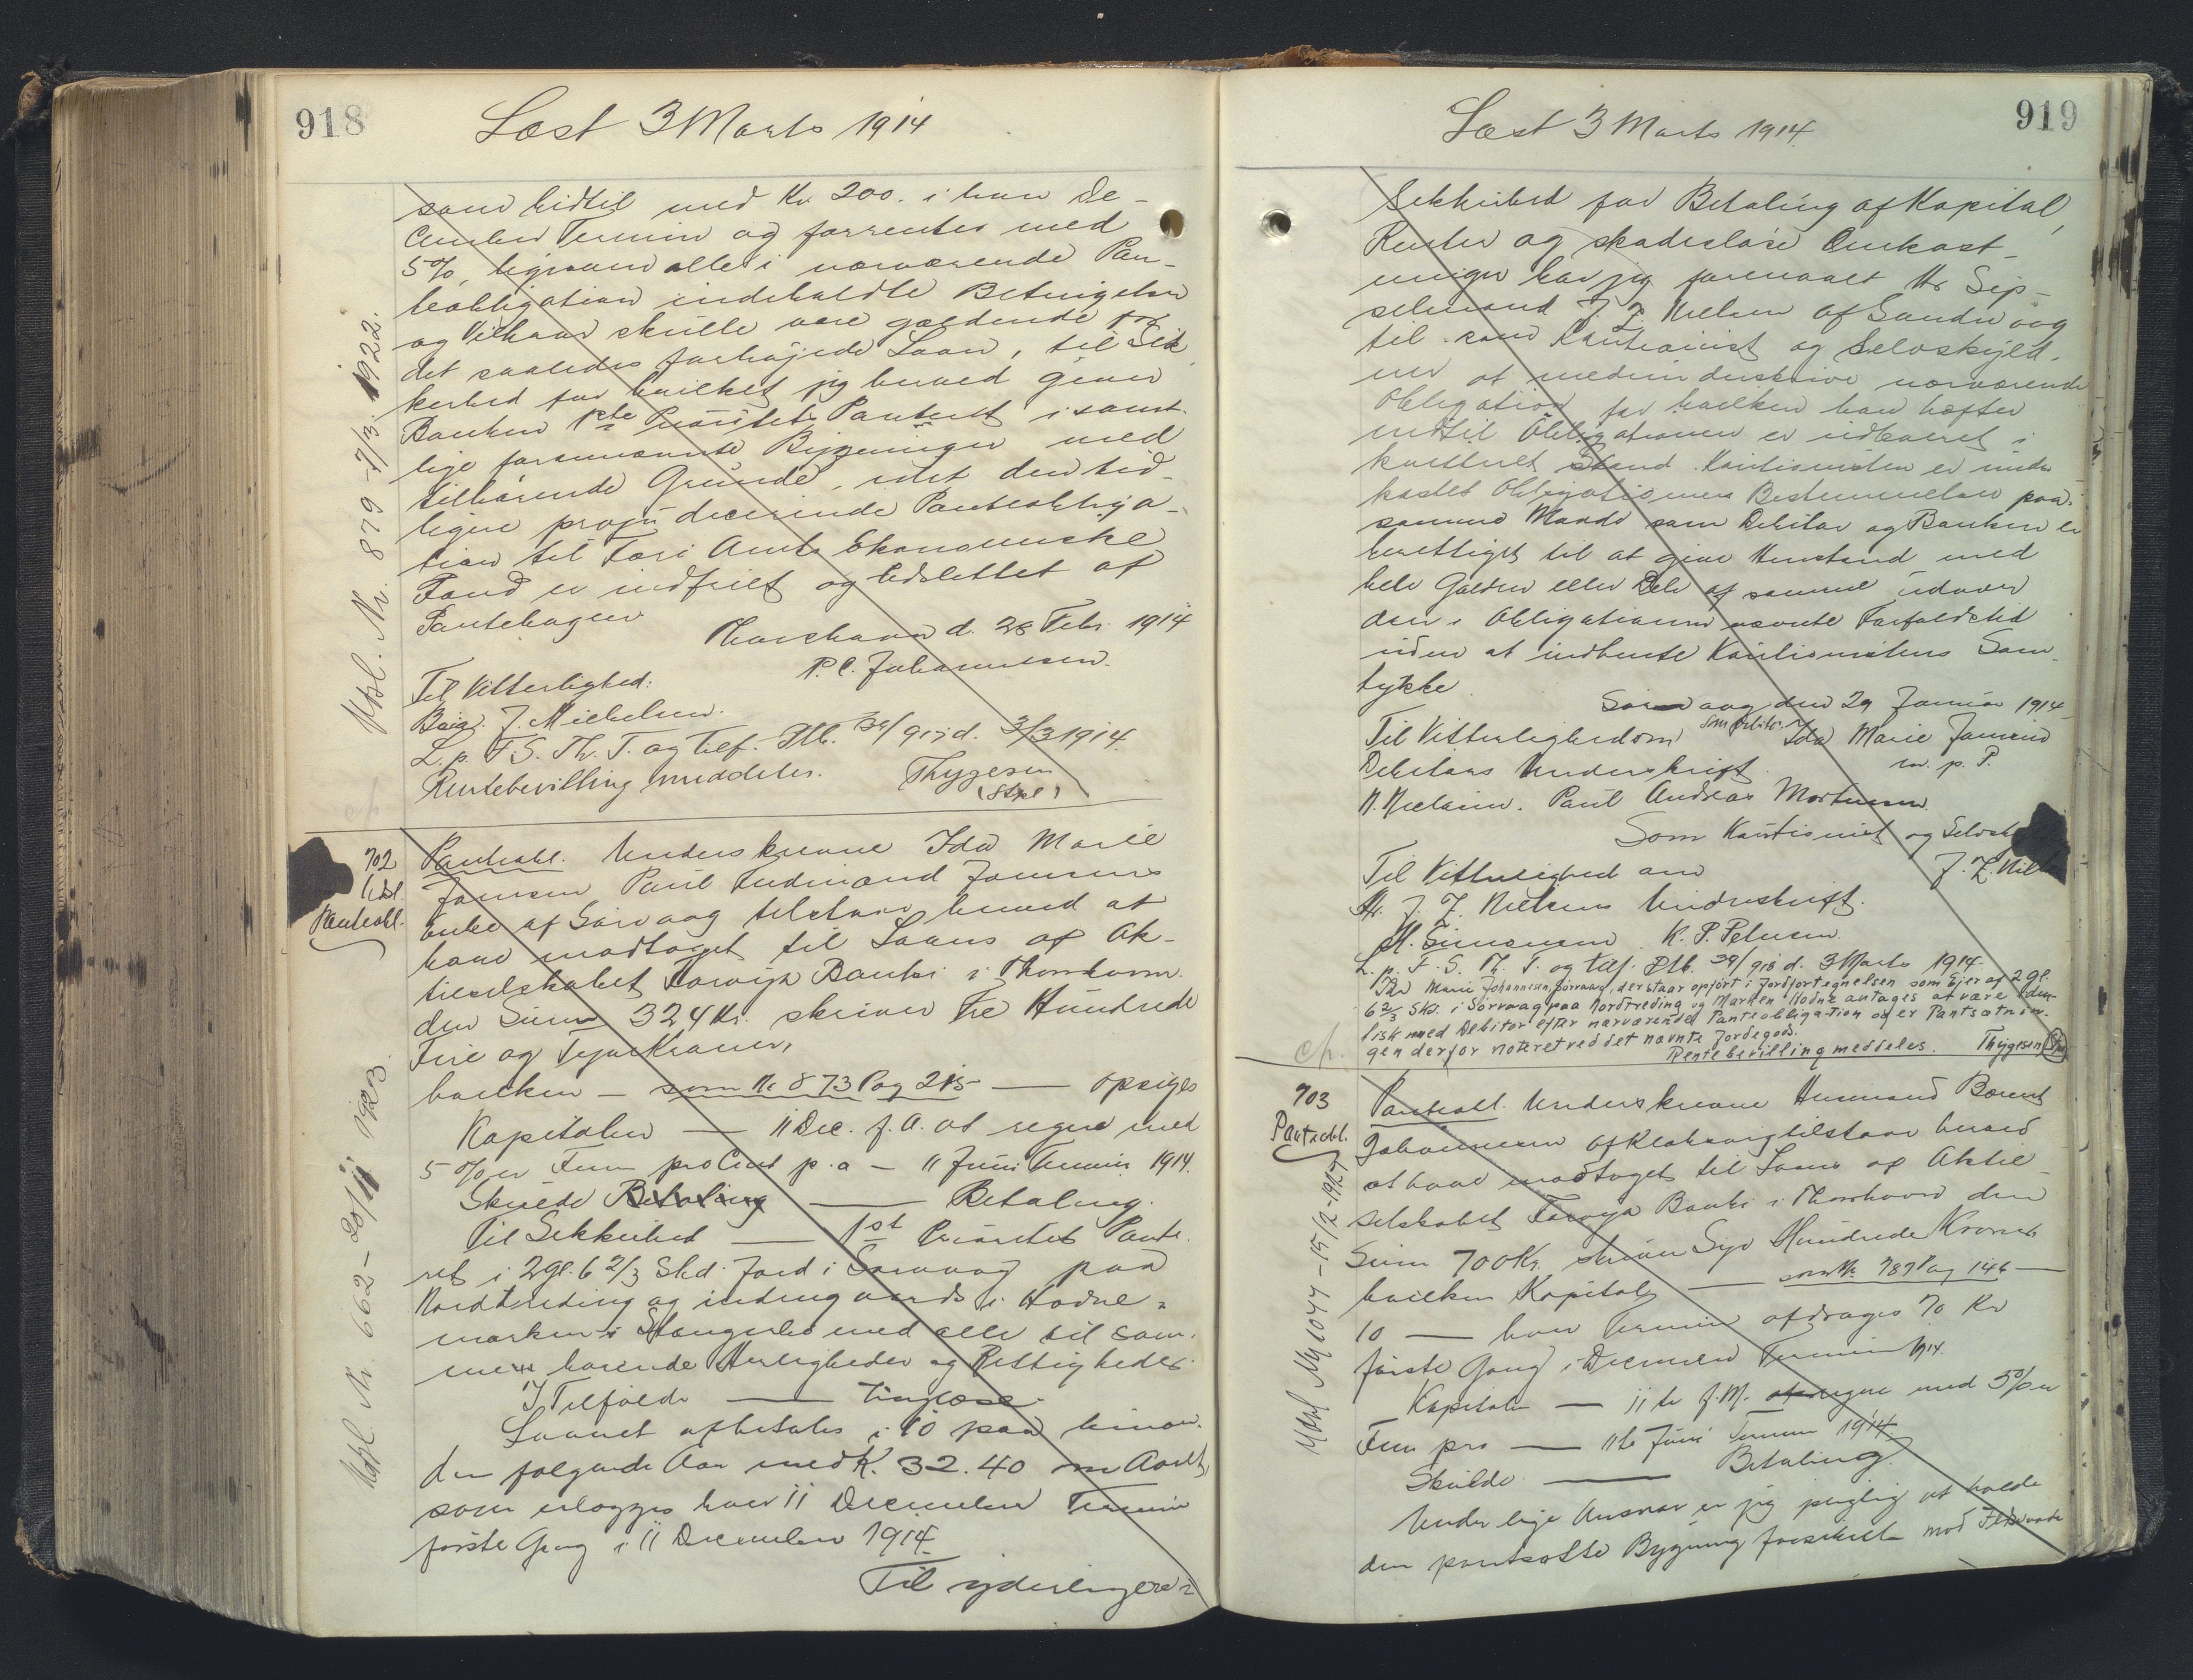 918
Læst 3 Marts 1914
som hidtil med Kr. 200. i hver De-
cember Termin og forrentes med
5%, ligesom alle i nærværende Pan-
teobligation indeholdte Betingelser
og Vilkaar skulle være gældende for
det saaledes forhøjede Laan, til Sik-
kerhed for hvilket jeg herved giver
Banken 1ste Prioritets Panteret i samt-
lige forannævnte Bygninger med
tilhørende Grunde, idet den tid-
ligere præjudicerende Panteobliga-
tion til Færø Amts Økonomiske
Fond er indfriet og udslettet af
Pantebogen
Thorshavn d. 28 Febr. 1914
P. C. Johannesen.
Til Vitterlighed:
J. Michelsen.
L. p. F. S. Th. T. og Tilf. Ptb. 38/917 d. 3/3 1914.
Rentebevilling meddeles. Thygesen
(Stpl)
Udsl. Nr. 879 - 7/3. 1922.
702
Udsl.
Panteobl.
Panteobl. Underskrevne Ida Marie
Joensen Paul Ferdinand Joensens
Enke af Sørvaag tilstaar herved at
have modtaget til Laans af Ak-
tieselskabet Føroya Banki i Thorshavn
den Sum 324 Kr. skriver Tre Hundrede
Fire og Tyve Kroner,
hvilken — som Nr 873 Pag 215 — opsiges
Kapitalen — 11 Dec. f. A. at regne med
5 % er Fem pro Cent p. a — 11 Juni Termin 1914.
Skulde Betaling — Betaling.
Til Sikkerhed — 1st Prioritets Pante-
ret i 2 gl. 6 2/3 Skd. Jord i Sørvaag paa
Nordtreding og indengaards i Hodne-
marken i Stangerbø med alle til sam-
me hørende Herligheder og Rettigheder.
I Tilfælde — tinglæse.
Laanet afbetales i 10 paa hinan-
den følgende Aar med K. 32.40 om Aaret,
som erlægges hver 11 December Termin
første Gang i 11 December 1914.
Til yderligere
Udsl. Nr 662 - 20/11 1923.
919
Læst 3 Marts 1914.
Sikkerhed for Betaling af Kapital,
Renter og skadesløse Omkost-
ninger har jeg formaaet Hr. Sys-
selmand J. Z. Nielsen af Sandevaag
til som Kautionist og Selvskyld-
ner at medunderskrive nærværende
Obligation for hvilken han hæfter
indtil Obligationen er udleveret i
kvitteret Stand. Kautionisten er under-
kastet Obligationens Bestemmelser paa
samme Maade som Debitor og Banken er
berettiget til at give Henstand med
hele Gælden eller Dele af samme udover
den i Obligationen nævnte Forfaldstid
uden at indhente Kautionistens Sam-
tykke.
Sørvaag den 29 Januar 1914
Til Vitterlighed om som Debitor. Ida Marie Joensen
Debitors Underskrift. m. p. P.
N. Nielsen. Paul Andreas Mortensen.
Som Kautionist og Selvsk
Til Vitterlighed om J. Z. Niel
Hr. J. Z. Nielsens Underskrift.
M. Simonsen. K. P. Petersen.
L. p. F. S. Th. T. og Tilf. Ptb. 39/918 d. 3 Marts 1914.
Ida Marie Johannesen, Sørvaag, der staar opført i Jordfortegnelsen som Ejer af 2 gl.
6 2/3 Skd. i Sørvaag paa Nordtreding og Marken Hodne antages at være iden-
tisk med Debitor efter nærværende Panteobligation og er Pantsætnin-
gen derfor noteret ved det nævnte Jordegods.
Rentebevilling meddeles. Thygesen (Stpl)
703
Panteobl.
Panteobl. Underskrevne Husmand
Johannesen af Klaksvig tilstaar herved
at have modtaget til Laans af Aktie-
selskabet Føroya Banki i Thorshavn den
Sum 700 Kr. skriver Syv Hundrede Kroner
hvilken Kapital — som Nr. 787 Pag 146 —
10 — hver Termin afdrages 70 Kr
første Gang i December Termin 1914.
Kapitalen — 11te f. M. at regne med 5% er
Fem pro — 11te Juni Termin 1914.
Skulde — Betaling.
Under lige Ansvar er jeg pligtig at holde
den pantsatte Bygning forsikret mod Ildsvaade
Udsl Nr 1044 - 15/2 - 1915